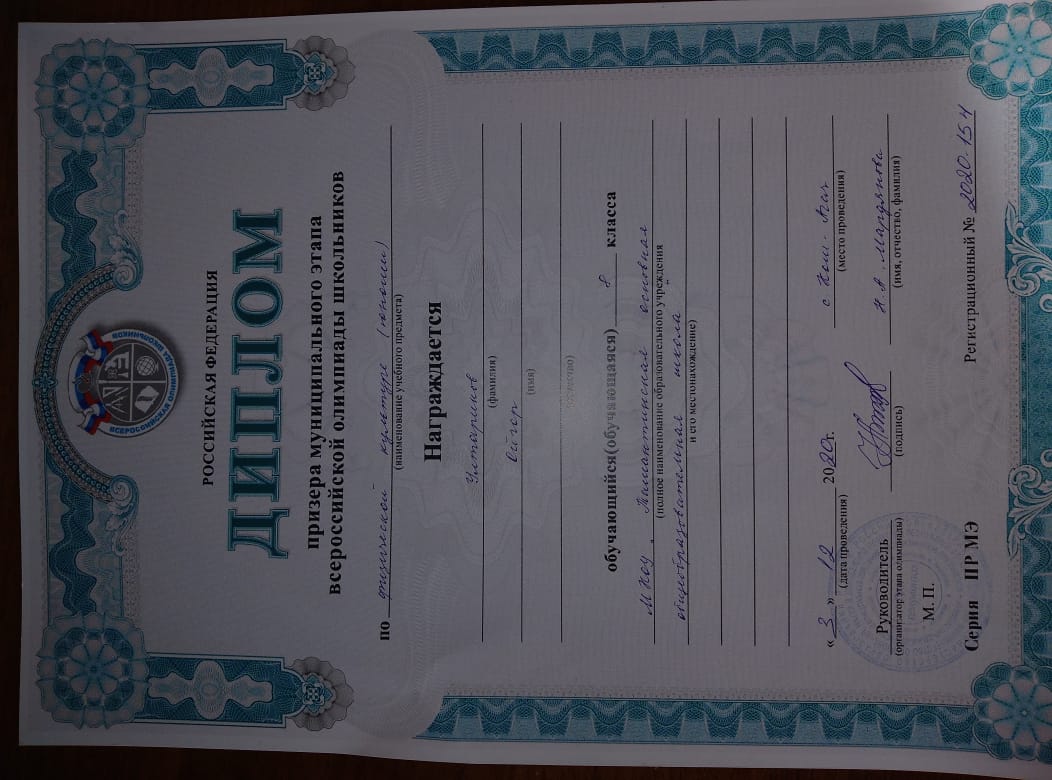 ВСЕРОССИЙСКАЯ ОЛИМПИАДА ШКОЛЬНИКОВ
РОССИЙСКАЯ ФЕДЕРАЦИЯ
ДИПЛОМ
призера муниципального этапа
всероссийской олимпиады школьников
по физической культуре (юноши)
(наименование учебного предмета)
Награждается
Ултариков
(фамилия)
Ойгор
(имя)
обучающийся(обучающаяся) 8 класса
МКОУ „Ташантинская основная
(полное наименование образовательного учреждения
общеобразовательная школа"
и его местонахождение)
« 3 » 12 2020г. с. Кош-Агач
(дата проведения) (место проведения)
Руководитель Н.А.
(организатор этапа олимпиады) (подпись) (имя, отчество, фамилия)
М. П.
Серия ПР МЭ Регистрационный № 2020-154